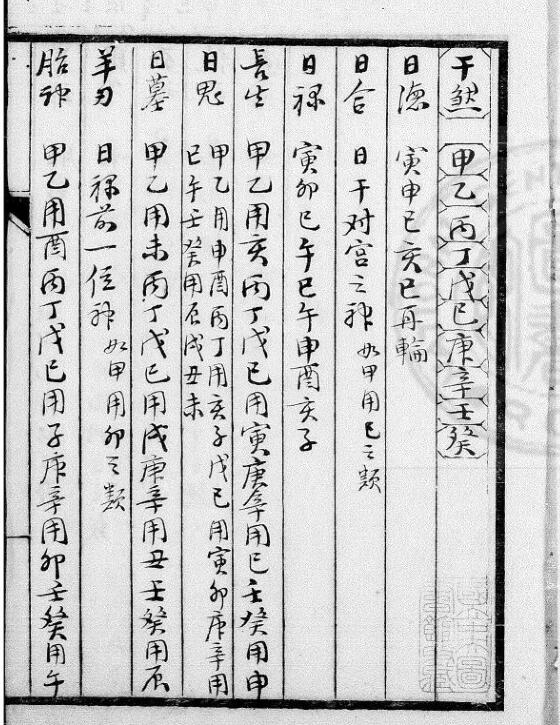 干煞 甲乙丙丁戊巳庚辛壬癸
日德 寅申巳亥巳再輪
日合 日干对宫之神如甲用巳之類
日禄 寅卯巳午巳午申酉亥子
長生 甲乙用亥丙丁戊巳用寅庚辛用巳壬癸用申
日鬼 甲乙用申酉丙丁用亥子戊巳用寅卯庚辛用
巳午壬癸用辰戌丑未
日墓 甲乙用未丙丁戊巳用戌庚辛用丑壬癸用辰
羊刃 日禄前一位神如甲用卯之類
胎神 甲乙用酉丙丁戊巳用子庚辛用卯壬癸用午